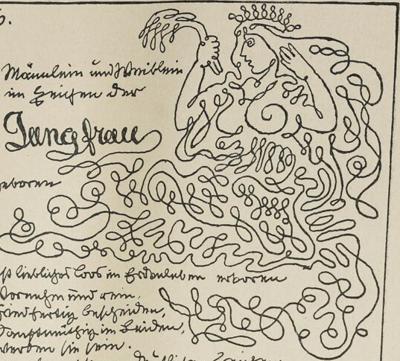 Männlein und Weiblein
im Zeichen der
Jungfrau
geboren
ist liebliches Loos im Erdenleben erkoren
Vornehm und rein,
bescheiden,
Sanftmüthig im Leiden,
werden sie sein.